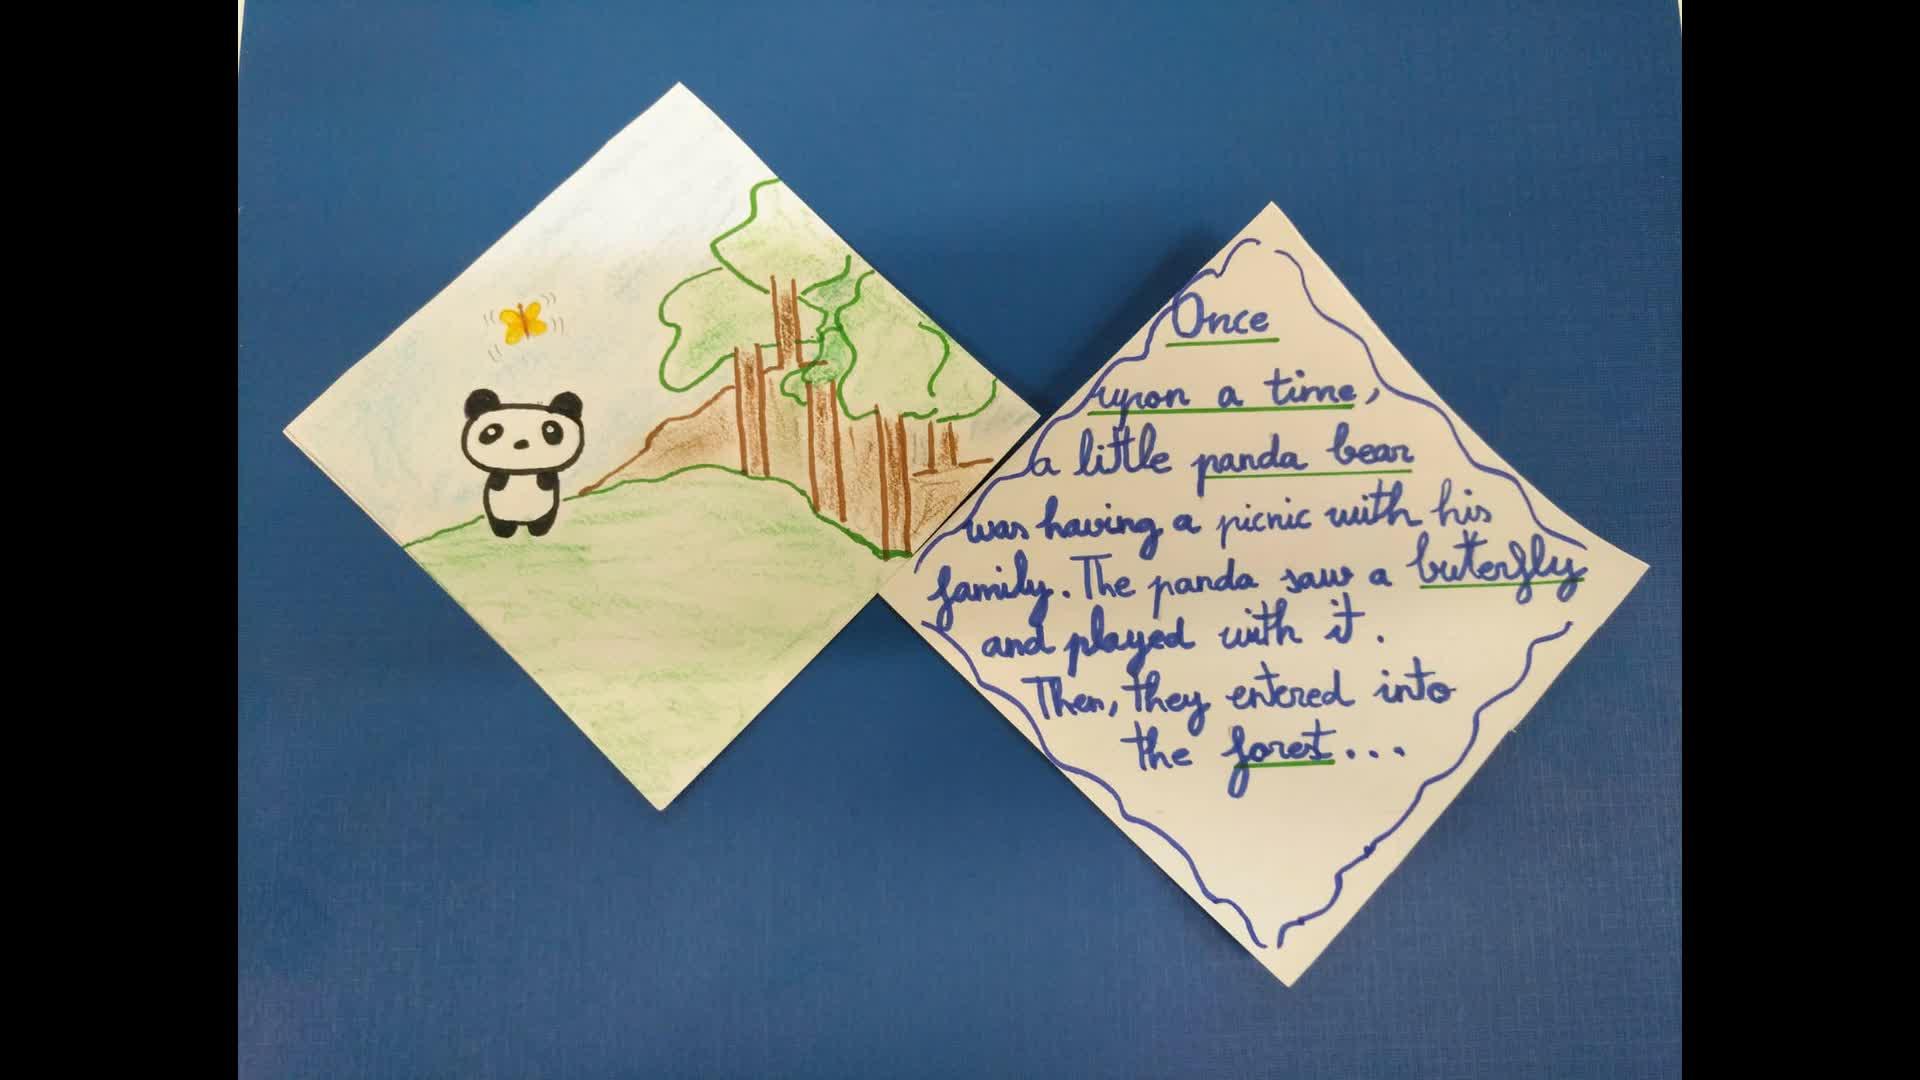 Once
upon a time,
a little panda bear
was having a picnic with his
family. The panda saw a buterfly
and played with it.
Then, they entered into
the forest...